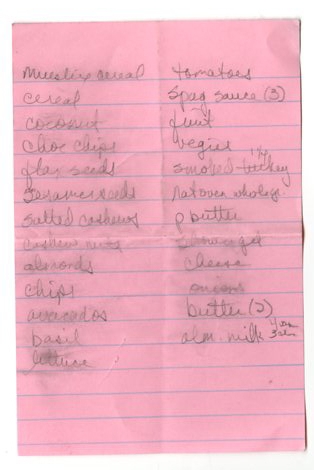 Mueslix cereal
cereal
coconut
choc chips
flax seeds
sesame seeds
salted cashews
cashew nuts
almonds
chips
avacados
basil
lettuce
tomatoes
spag sauce (3)
fruit
vegies
smoked turkey
p butter
shower gel
cheese
onions
butter (2)
alm. milk